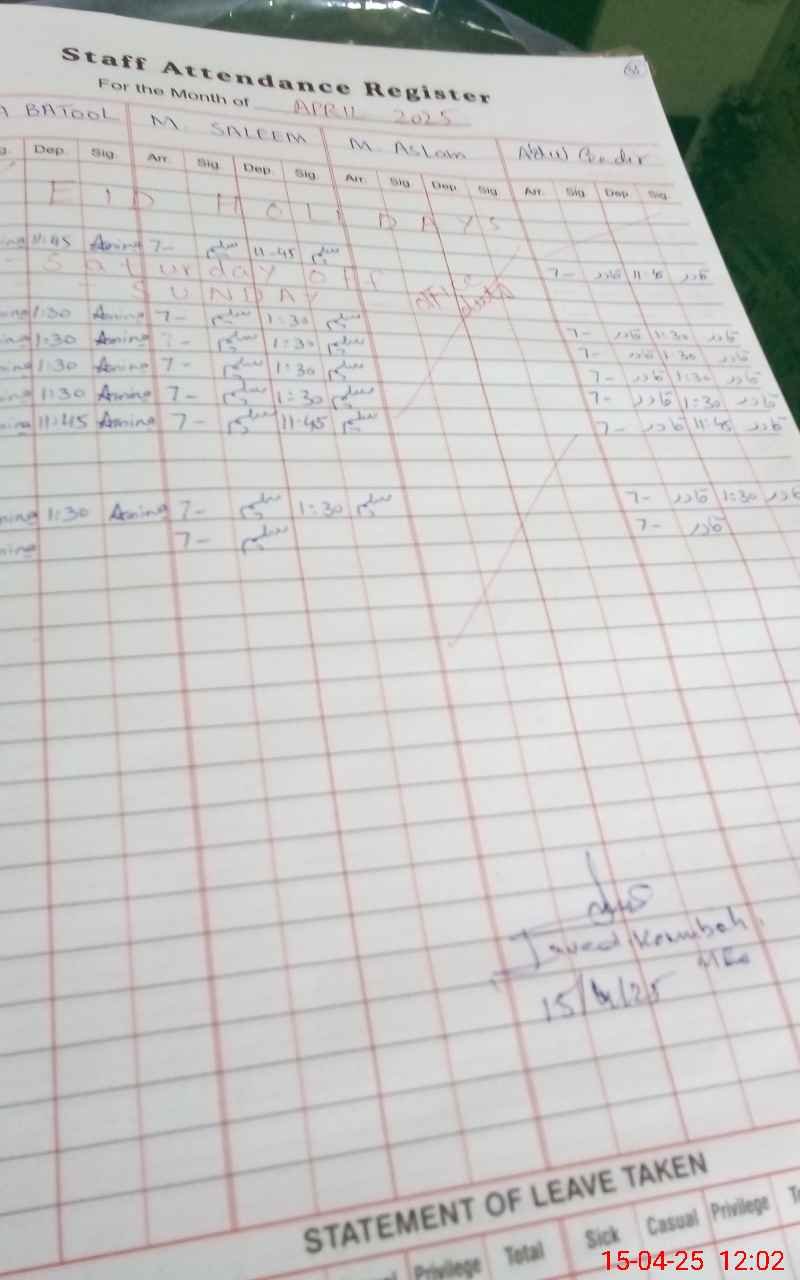 Staff Attendance Register
For the Month of APRIL 2025
BATOOL M. SALEEM M. ASLAM Abdul
Dep. Sig. Arr. Sig. Dep. Sig. Arr. Sig. Dep. Sig. Arr. Sig. Dep. Sig.
EID HOLIDAYS
11:45 Amina 7- سلیم 11-45 سلیم
Saturday OFF 7- قادر 11:45 قادر
SUNDAY
1:30 Amina 7- سلیم 1:30 سلیم 7- قادر 1:30 قادر
1:30 Amina 7- سلیم 1:30 سلیم 7- قادر 1:30 قادر
1:30 Amina 7- سلیم 1:30 سلیم 7- قادر 1:30 قادر
1:30 Amina 7- سلیم 1:30 سلیم 7- قادر 1:30 قادر
11:45 Amina 7- سلیم 11-45 سلیم 7- قادر 11:45 قادر
1:30 Amina 7- سلیم 1:30 سلیم 7- قادر 1:30 قادر
7- سلیم 7- قادر
Javed Kamboh
15/4/25
STATEMENT OF LEAVE TAKEN
Privilege Total Sick Casual Privilege
15-04-25 12:02